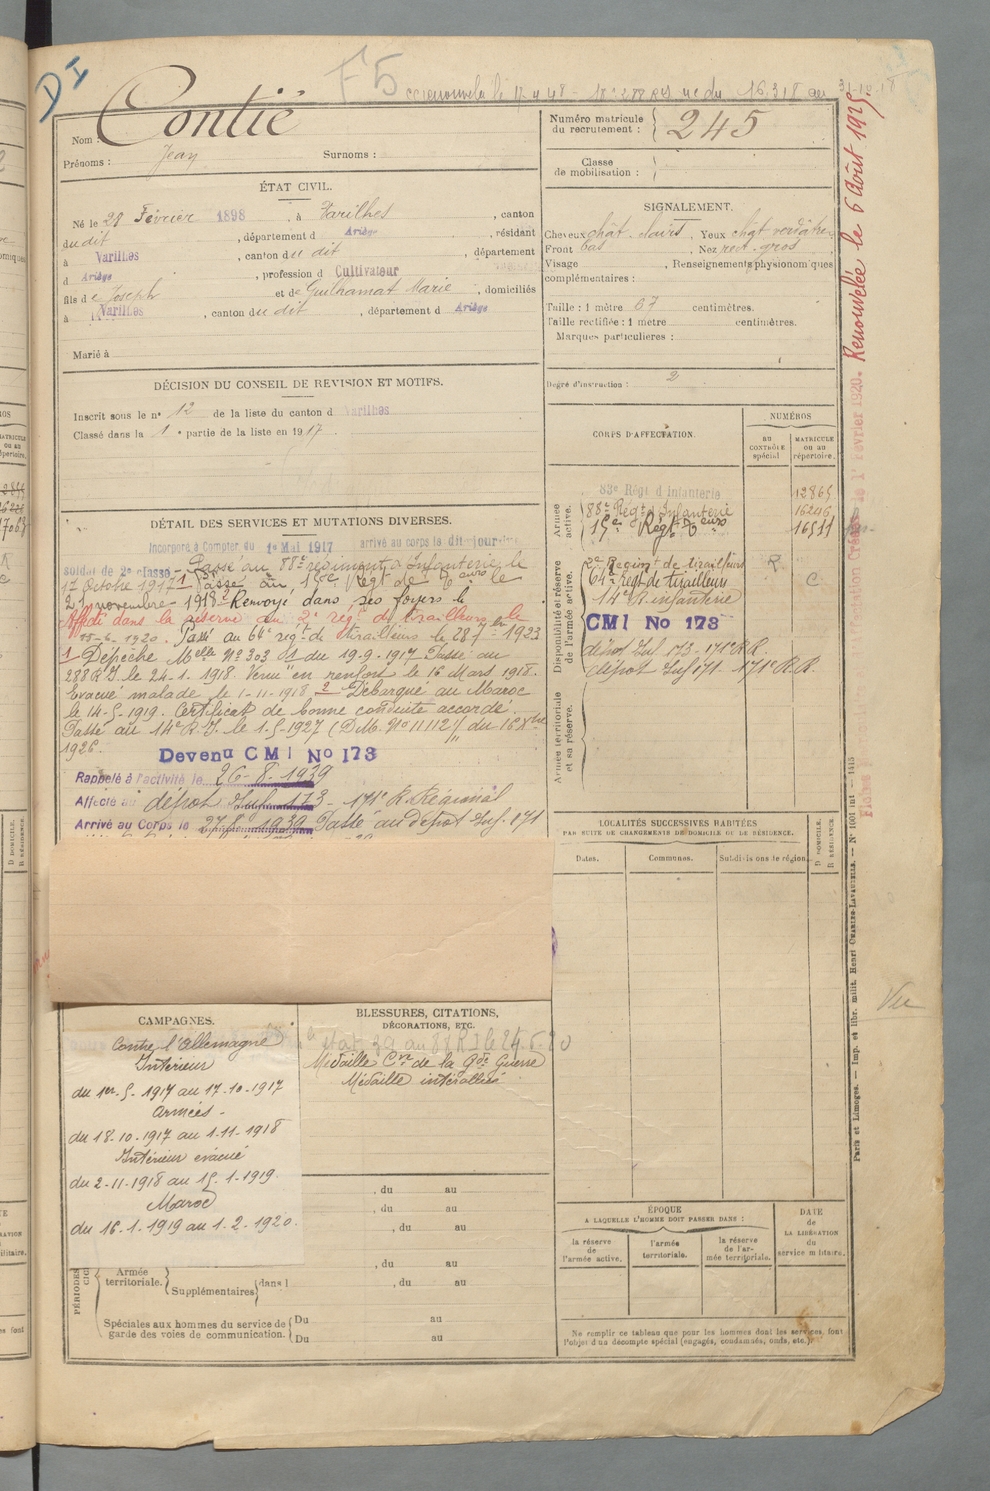 DI
F5
Contié
Nom :
Prénoms : Jean Surnoms :
Numéro matricule du recrutement : 245
Classe de mobilisation :
ÉTAT CIVIL.
Né le 28 Février 1898, à Varilhes, canton
du dit, département d Ariège, résidant
à Varilhes, canton du dit, département
d Ariège, profession d Cultivateur
fils de Joseph et de Guilhamat Marie, domiciliés
à Varilhes, canton du dit, département d Ariège
Marié à
SIGNALEMENT.
Cheveux chât. clairs. Yeux chât verdâtre
Front bas. Nez rect. gros
Visage, Renseignements physionomiques
complémentaires :
Taille : 1 mètre 67 centimètres.
Taille rectifiée : 1 mètre centimètres.
Marques particulières :
Degré d'instruction : 2
DÉCISION DU CONSEIL DE REVISION ET MOTIFS.
Inscrit sous le n° 12 de la liste du canton d Varilhes
Classé dans la 1e partie de la liste en 1917.
DÉTAIL DES SERVICES ET MUTATIONS DIVERSES.
Incorporé à Compter du 1er Mai 1917 arrivé au corps le dit jour
soldat de 2e classe - Passé au 88e régiment d'Infanterie le
17 Octobre 1917 1 Passé au 15e Régt de le
21 novembre 1918 2 Renvoyé dans ses foyers le
Affecté dans la réserve au 2e rég. de tirailleurs le
15-6-1920. Passé au 64e régt de tirailleurs le 28 7bre 1923
1 Dépêche Melle N° 303 du 19-9-1917 Passé au
288 R.I. le 24-1-1918. Venu en renfort le 16 Mars 1918.
Evacué malade le 1-11-1918. 2 Débarqué au Maroc
le 14-5-1919. Certificat de bonne conduite accordé.
Passé au 14e R.I. le 1-5-1927 (D.M. N° 11112 du 16 Xbre
1926.
Devenu CMI No 173
Rappelé à l'activité le 26-8-1939
Affecté au dépôt Inf. 173 - 171e R. Régional
Arrivé au Corps le 27-8-1939 Passé au dépôt Inf. 171
CORPS D'AFFECTATION.
NUMÉROS
AU CONTRÔLE spécial
MATRICULE OU AU répertoire.
Armée active.
83e Régt d'Infanterie 12865
88e Régt d'Infanterie 16246
15e Régt 16511
Disponibilité et réserve de l'armée active.
2e Régiment de tirailleurs R
64e régt de tirailleurs C
14e R. infanterie
CMI No 173
dépôt Inf 173 - 171e R.R.
dépot Inf 171 - 171e R.R.
Armée territoriale et sa réserve.
LOCALITÉS SUCCESSIVES HABITÉES
PAR SUITE DE CHANGEMENTS DE DOMICILE OU DE RÉSIDENCE.
Dates. Communes. Subdivisions de région.
D DOMICILE. R RÉSIDENCE.
CAMPAGNES.
Contre l'Allemagne
Intérieur
du 1er-5-1917 au 17-10-1917
Armées -
du 18-10-1917 au 1-11-1918
Intérieur évacué
du 2-11-1918 au 15-1-1919
Maroc
du 16-1-1919 au 1-2-1920.
BLESSURES, CITATIONS,
DÉCORATIONS, ETC.
Médaille Cve de la Gde Guerre
Médaille interalliée
, du au
, du au
, du au
, du au
PÉRIODES
Armée territoriale. Supplémentaires dans l , du au
Spéciales aux hommes du service de garde des voies de communication. Du au
Du au
ÉPOQUE
A LAQUELLE L'HOMME DOIT PASSER DANS :
la réserve de l'armée active.
l'armée territoriale.
la réserve de l'armée territoriale.
DATE de LA LIBÉRATION du service militaire.
Ne remplir ce tableau que pour les hommes dont les services font
l'objet d'un décompte spécial (engagés, condamnés, omis, etc.).
Renouvelée le 6 Août 1925.
Paris et Limoges. — Imp. et lib. milit. Henri CHARLES-LAVAUZELLE. — N° 1001 int — 1415
Vu